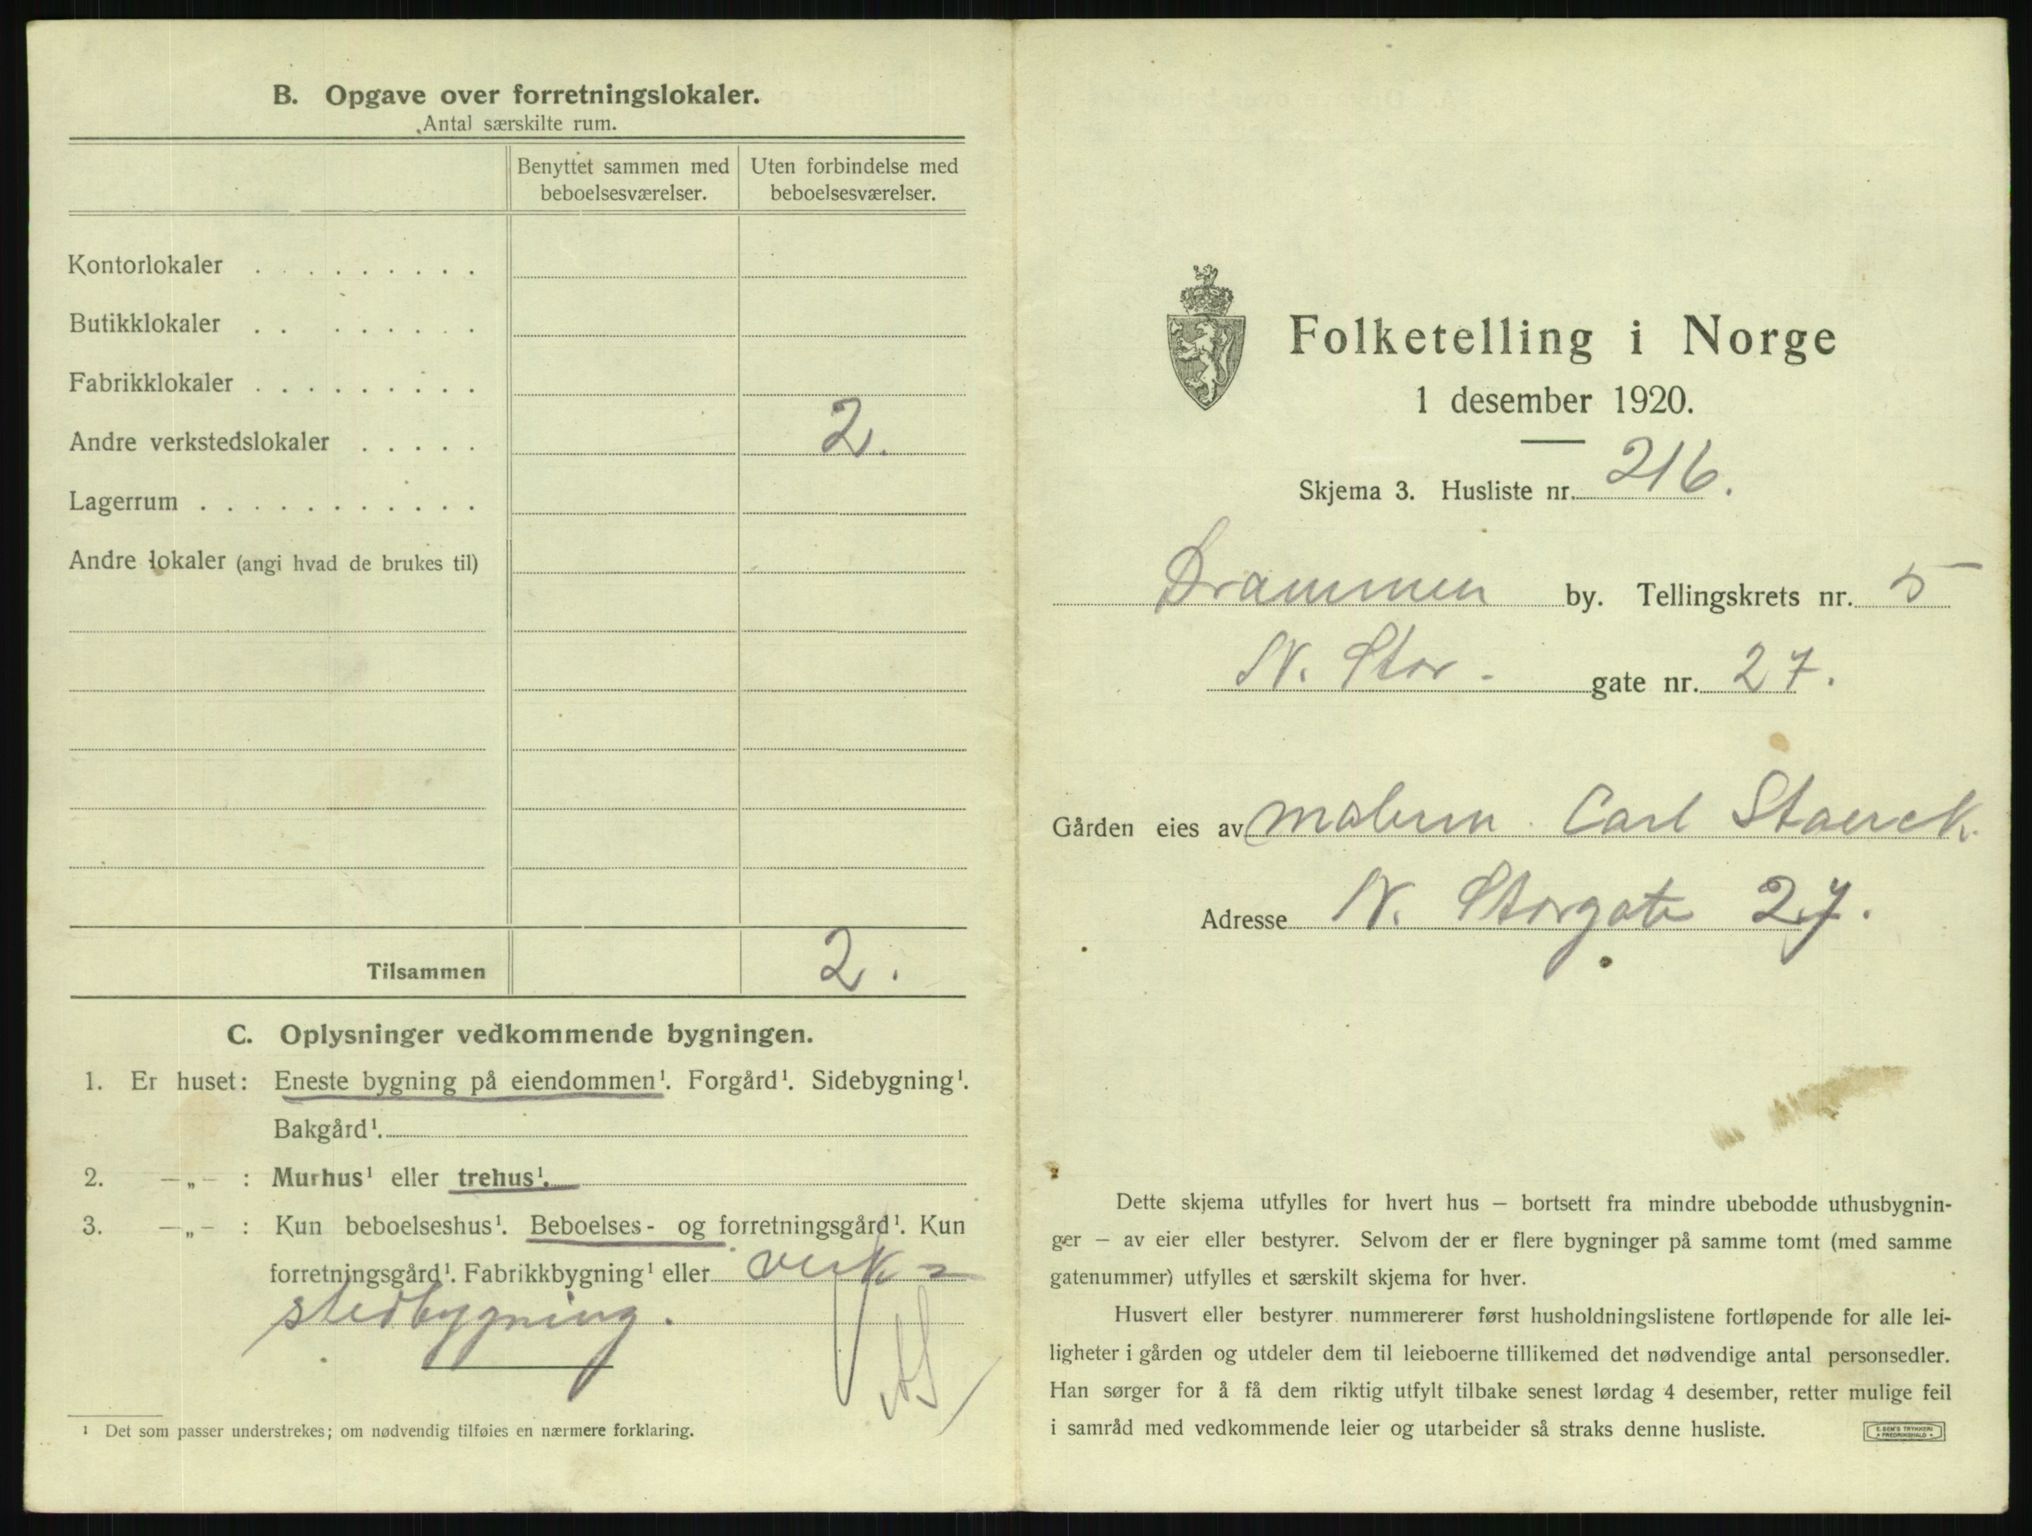 B. Opgave over forretningslokaler.
Antal særskilte rum.
Benyttet sammen med beboelsesværelser.
Uten forbindelse med beboelsesværelser.
Kontorlokaler . . . . . . . . .
Butikklokaler . . . . . . . .
Fabrikklokaler . . . . . . . . .
Andre verkstedslokaler . . . . . 2.
Lagerrum . . . . . . . . . . .
Andre lokaler (angi hvad de brukes til)
Tilsammen 2.
C. Oplysninger vedkommende bygningen.
1. Er huset: Eneste bygning på eiendommen¹. Forgård¹. Sidebygning¹.
Bakgård¹.
2. —„— : Murhus¹ eller trehus¹.
3. —„— : Kun beboelseshus¹. Beboelses- og forretningsgård¹. Kun
forretningsgård¹. Fabrikkbygning¹ eller verk=
stedbygning.
¹ Det som passer understrekes; om nødvendig tilføies en nærmere forklaring.
Folketelling i Norge
1 desember 1920.
Skjema 3. Husliste nr. 216.
Drammen by. Tellingskrets nr. 5
N. Stor- gate nr. 27.
Gården eies av malerm. Carl Staerck.
Adresse N. Storgate 27.
Dette skjema utfylles for hvert hus — bortsett fra mindre ubebodde uthusbygnin-
ger — av eier eller bestyrer. Selvom der er flere bygninger på samme tomt (med samme
gatenummer) utfylles et særskilt skjema for hver.
Husvert eller bestyrer nummererer først husholdningslistene fortløpende for alle lei-
ligheter i gården og utdeler dem til leieboerne tillikemed det nødvendige antal personsedler.
Han sørger for å få dem riktig utfylt tilbake senest lørdag 4 desember, retter mulige feil
i samråd med vedkommende leier og utarbeider så straks denne husliste.
E. SEM'S TRYKKERI
FREDRIKSHALD